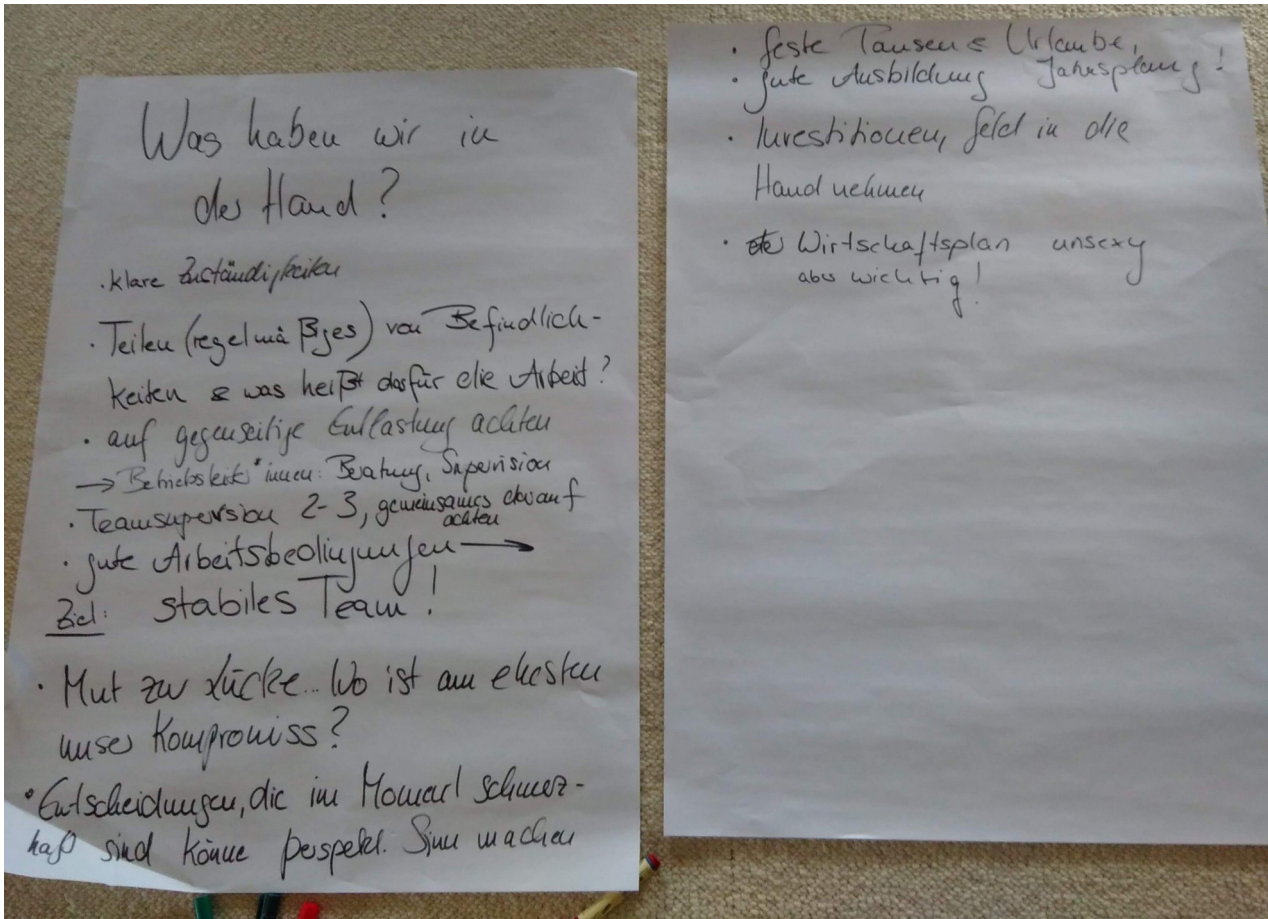 Was haben wir in
der Hand?
· klare Zuständigkeiten
· Teilen (regelmäßges) von Befindlich-
keiten & was heißt das für die Arbeit?
· auf gegenseitige Entlastung achten
→ Betriebsleiter*innen: Beratung, Supervision
· Teamsupervision 2-3, gemeinsames darauf
achten
· gute Arbeitsbedingungen →
Ziel: stabiles Team!
· Mut zur Lücke... Wo ist am ehesten
unser Kompromiss?
· Entscheidungen, die im Moment schmerz-
haft sind könne perspekt. Sinn machen
· feste Pausen & Urlaube,
· gute Ausbildung Jahresplanung!
· Investitionen, Geld in die
Hand nehmen
· Wirtschaftsplan unsexy
aber wichtig!